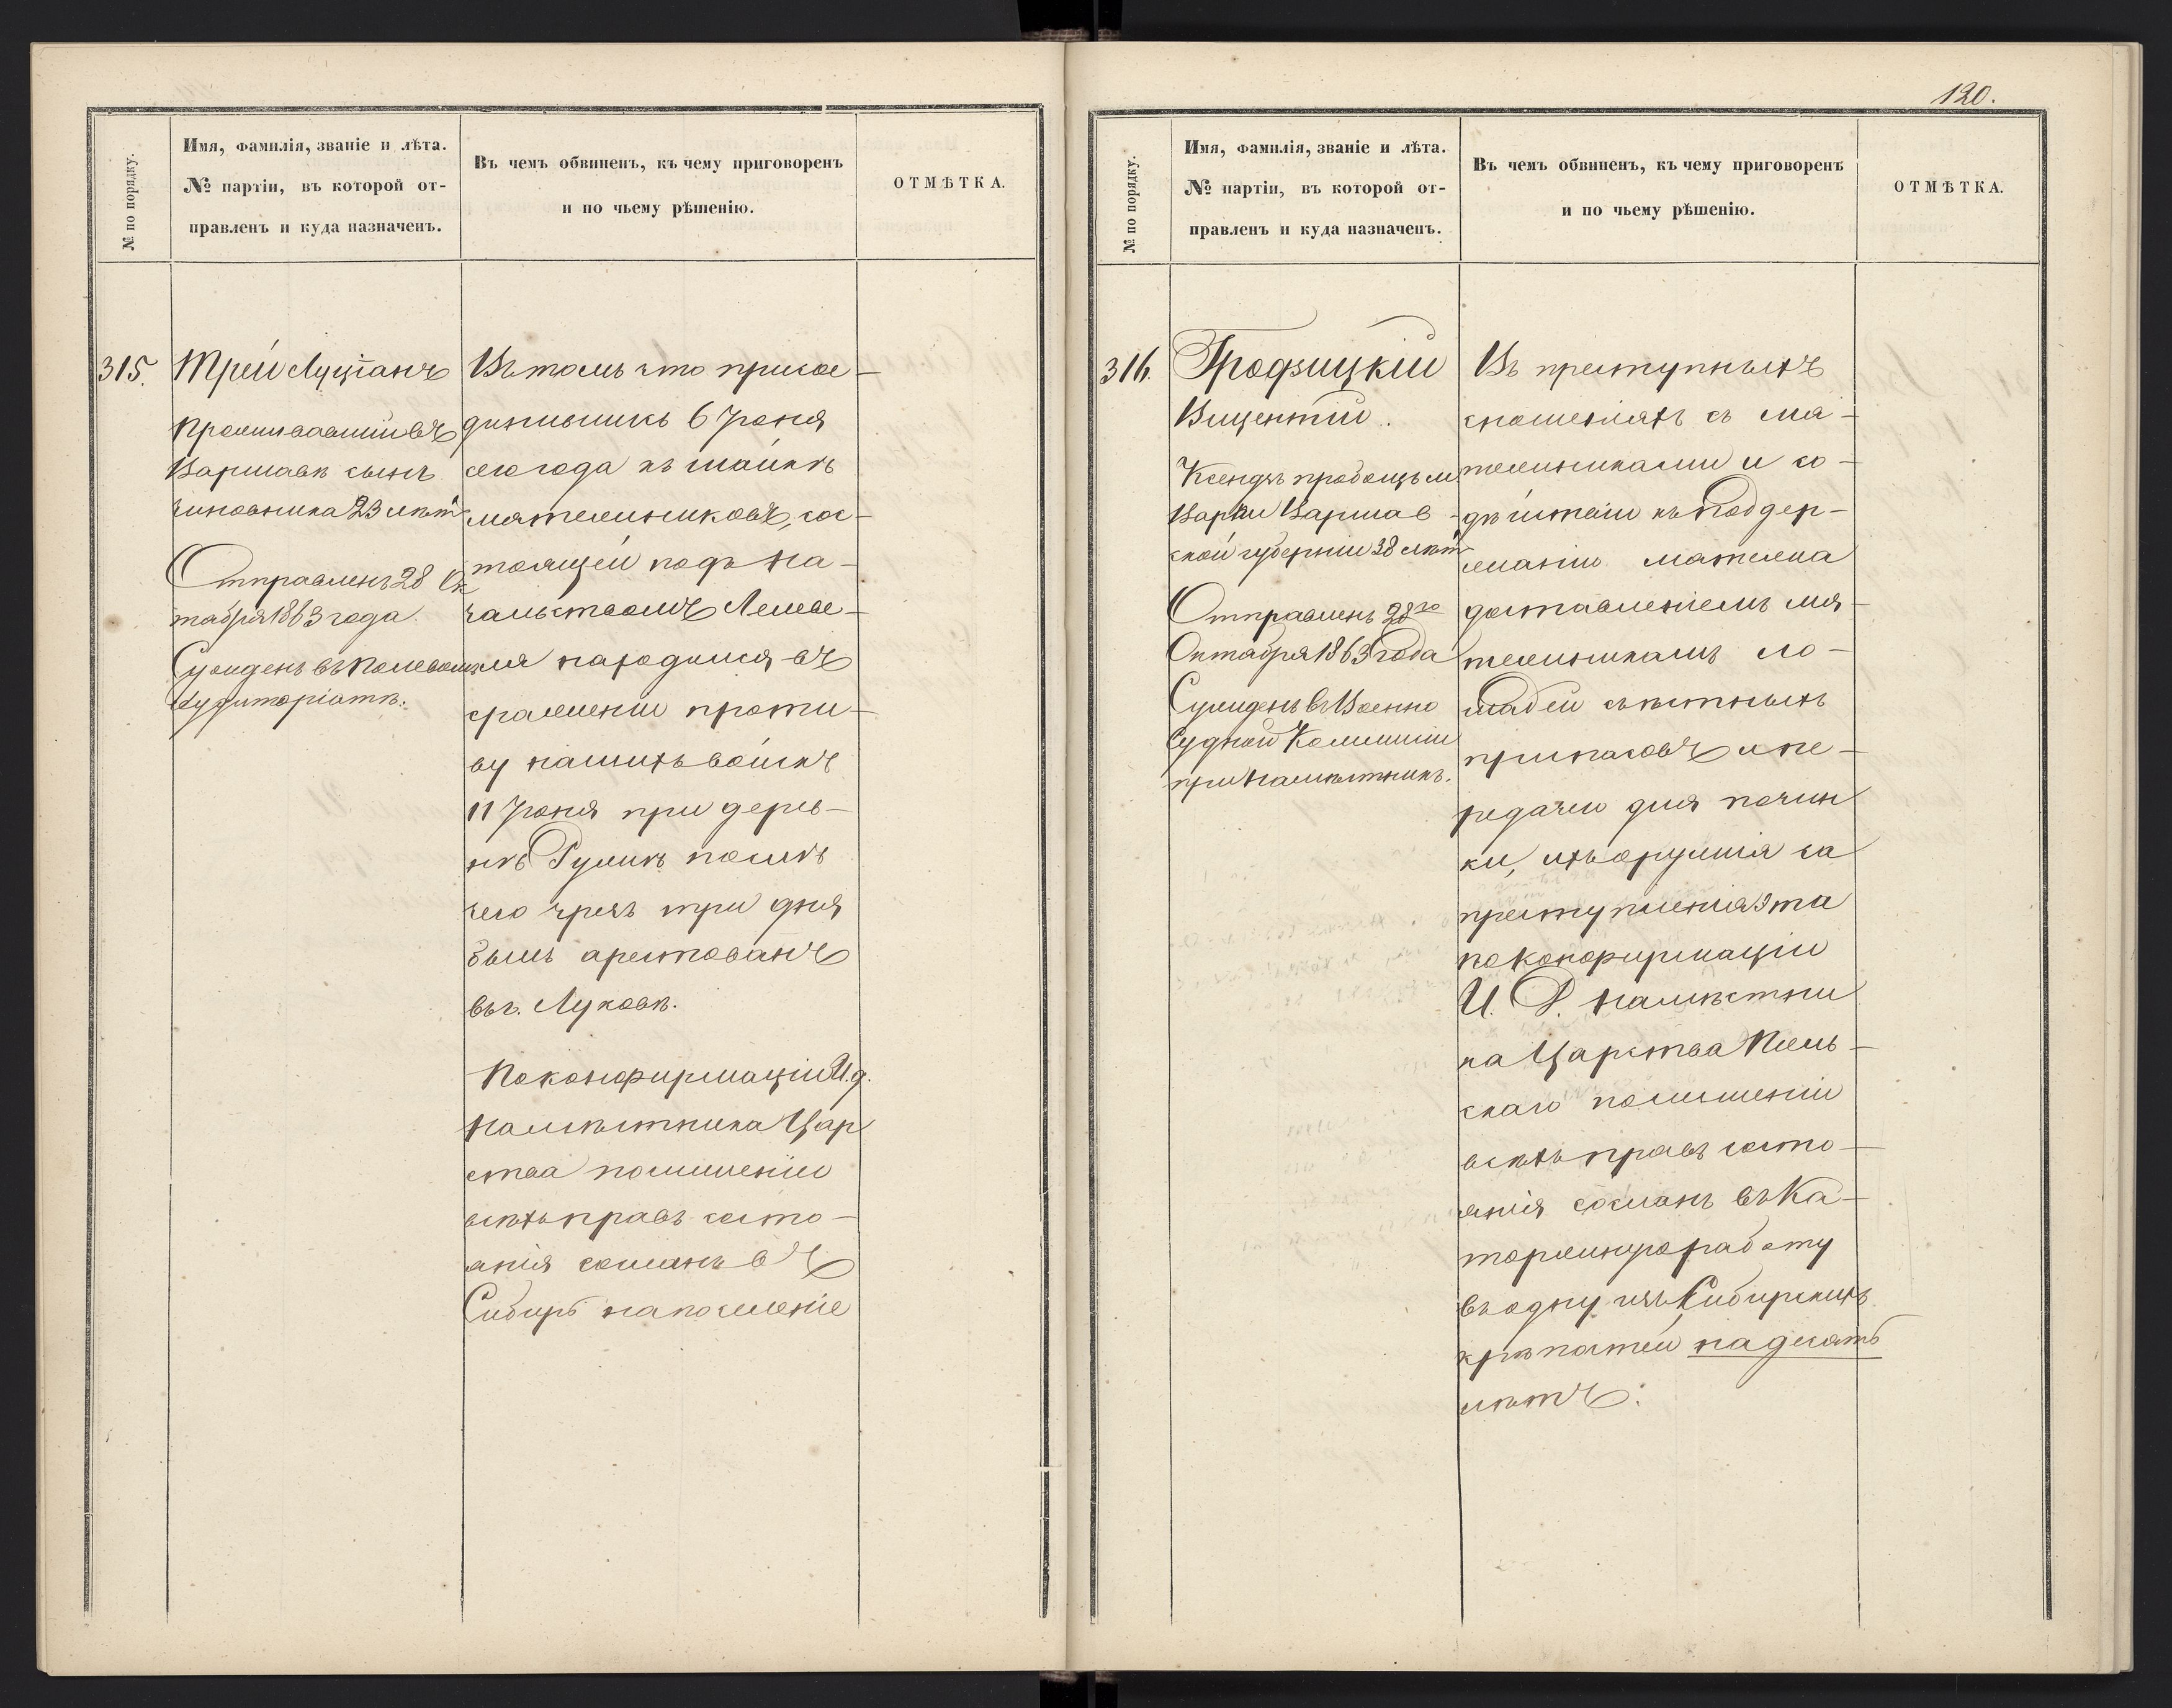 120.
№ по порядку.
Имя, фамилія, званіе и лѣта.
№ партіи, въ которой от-
правленъ и куда назначенъ.
Въ чемъ обвиненъ, къ чему приговоренъ
и по чьему рѣшенію.
ОТМѢТКА.
315.
Трей Луціанъ
Проживавшій въ
Варшавѣ сынъ
чиновника 23 лѣтъ
Отправленъ 28 Ок
тября 1863 года.
Сужденъ въ Полевомъ
Аудиторіатѣ.
Въ томъ что присое-
динившись 6 Іюня
сего года къ шайкѣ
мятежниковъ, сос-
тоящей подъ на-
чальствомъ Лелеве-
ля находился въ
сраженіи проти-
ву нашихъ войскъ
11 Іюня при дерев-
нѣ послѣ
чего чрезъ три дня
былъ арестованъ
въ г. Луковѣ.
По конфирмаціи И.д.
Намѣстника Цар
ства по лишеніи
всѣхъ правъ состо-
янія сосланъ въ
Сибирь на поселеніе
№ по порядку.
Имя, фамилія, званіе и лѣта.
№ партіи, въ которой от-
правленъ и куда назначенъ.
Въ чемъ обвиненъ, къ чему приговоренъ
и по чьему рѣшенію.
ОТМѢТКА.
316.
Гродзицкій
Вицентій.
Ксендзъ пробощъ м.
Варки Варшав-
ской губерніи 38 лѣтъ
Отправленъ 28го
Октября 1863 года
Сужденъ въ Военно
Судной Коммисіи
при Намѣстникѣ.
Въ преступныхъ
сношеніяхъ съ мя-
тежниками и со-
дѣйствіи къ поддер-
жанію мятежа
доставленіемъ мя-
тежникамъ ло-
шадей съѣстныхъ
припасовъ и пе-
редачею для почин
ки, ихъ оружія за
преступленія эти
по конфирмаціи
И. Д. Намѣстни
ка Царства Поль-
скаго по лишеніи
всѣхъ правъ состо-
янія сосланъ въ Ка-
торжную работу
въ одну изъ Сибирскихъ
крѣпостей на десять
лѣтъ.